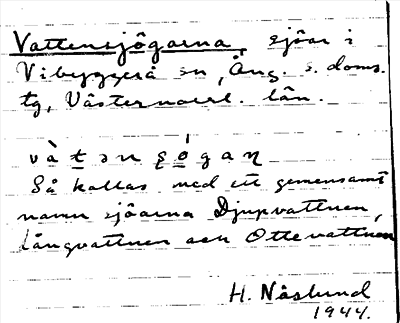 Vattensjögarna, sjöar i
Vibyggerå sn, Ång. s. doms.
tg, Västernorrl. län.
vàtənʂógaɳ
Så kallas med ett gemensamt
namn sjöarna Djupvattnen,
Långvattnen och Ottevattnen
H. Näslund
1944.